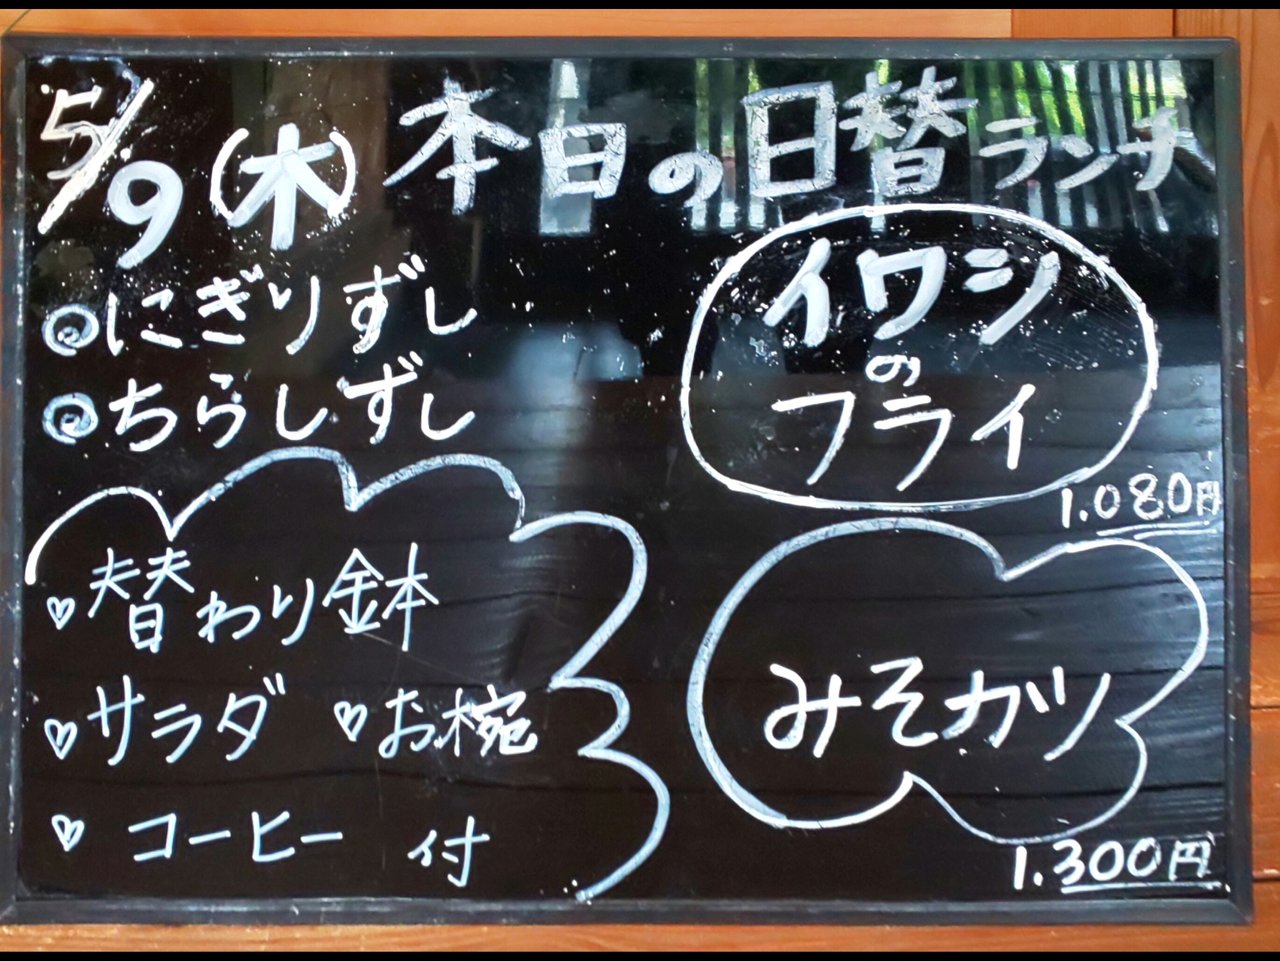 5/9(木) 本日の日替ランチ
◎にぎりずし
◎ちらしずし
イワシ
の
フライ
1.080円
♡替わり鉢
♡サラダ ♡お椀
♡コーヒー 付
みそカツ
1.300円